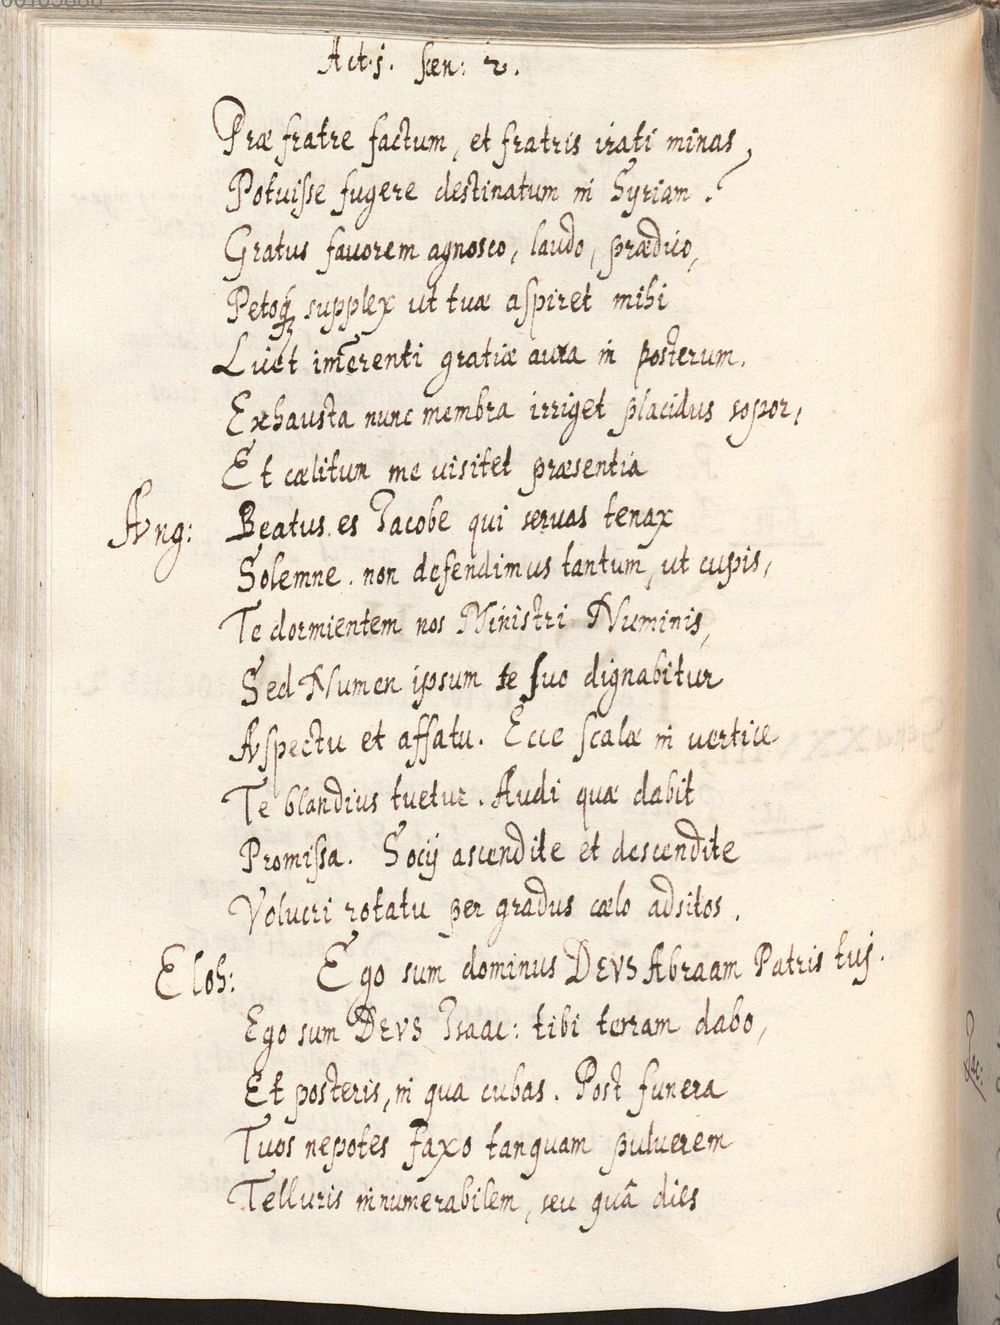 Act. j. scen: 2.
Præ fratre factum, et fratris irati minas,
Potuisse fugere destinatum in Syriam?
Gratus fauorem agnosco, laudo, prædico,
Petoq₃ supplex ut tuæ aspiret mihi
Licet im̃erenti gratiæ aura in posterum.
Exhausta nunc membra irriget placidus sopor,
Et cælitum me visitet præsentia
Ang: Beatus es Jacobe qui seruas tenax
Solemne. non defendimus tantum, ut cupis,
Te dormientem nos Ministri Numinis,
Sed Numen ipsum te suo dignabitur
Aspectu et affatu. Ecce scalæ in vertice
Te blandius tuetur. Audi quæ dabit
Promissa. Socij ascendite et descendite
Volucri rotatu per gradus cælo adsitos.
Eloh: Ego sum dominus DEVS Abraam Patris tuj.
Ego sum DEVS Isaac: tibi terram dabo,
Et posteris, in qua cubas. Post funera
Tuos nepotes faxo tanquam puluerem
Telluris innumerabilem, seu quã dies